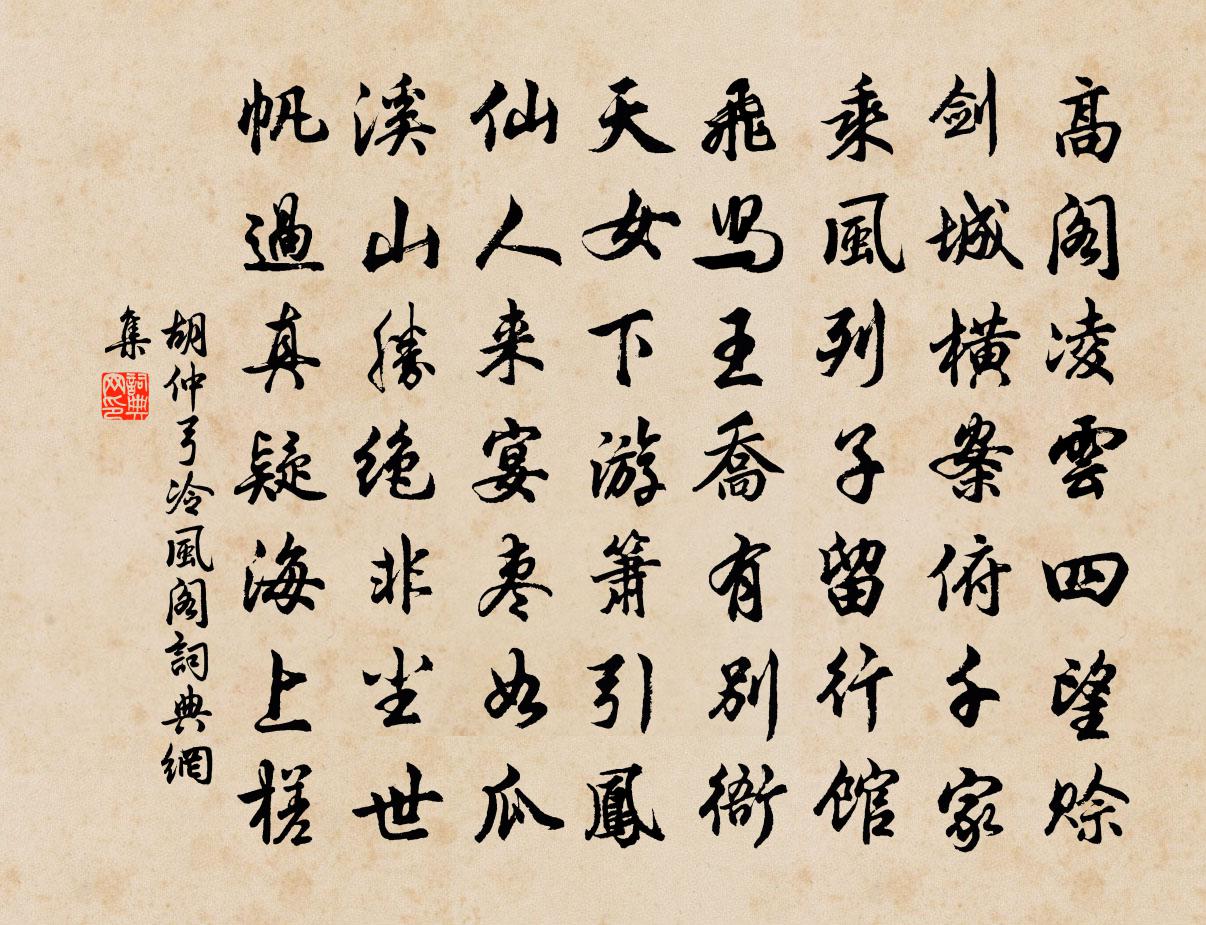 高阁凌雲四望赊
剑城横案俯千家
乘風列子留行馆
飛舄王喬有别衙
天女下游箫引鳳
仙人来宴枣如瓜
溪山勝绝非尘世
帆過真疑海上槎
胡仲弓冷風阁詞典網
集
詞典网印